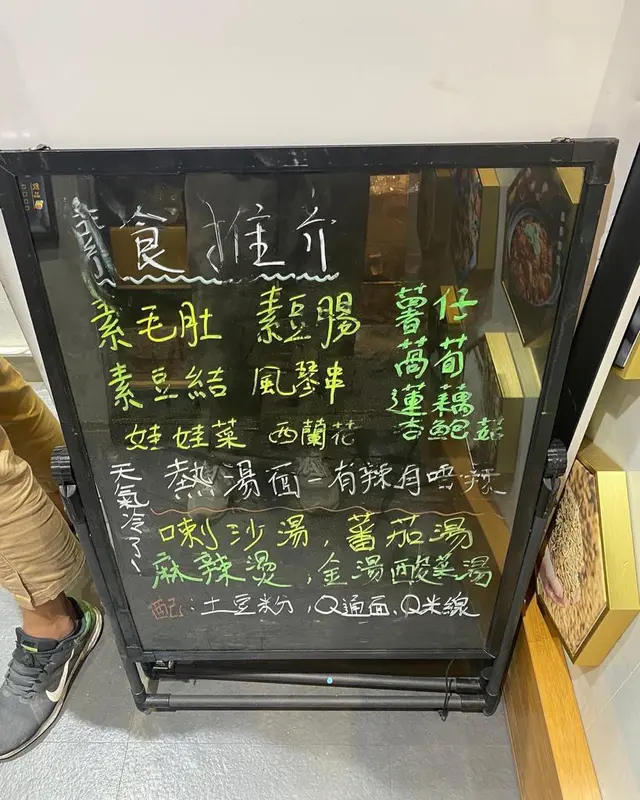 食推介
素毛肚 素豆腸 薯仔
萵荀
素豆結 風琴串 蓮藕
娃娃菜 西蘭花 杏鮑菇
天氣冷了! 熱湯面-有辣有唔辣
喇沙湯,蕃茄湯
麻辣燙,金湯酸菜湯
配:土豆粉,Q通面,Q米線